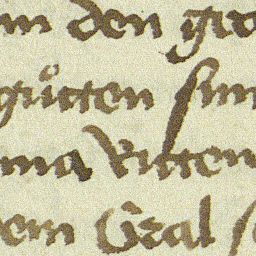 m den gra
gůtten sin
ma Ritten
dem Gral s